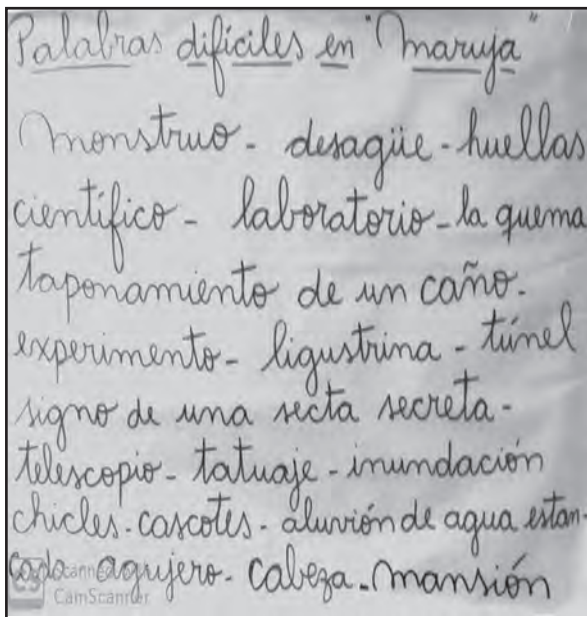 Palabras difíciles en "Maruja"
Monstruo - desagüe - huellas
científico - laboratorio - la quema
taponamiento de un caño.
experimento - ligustrina - túnel
signo de una secta secreta -
telescopio - tatuaje - inundación
chicles - cascotes - aluvión de agua estan-
cada agujero - cabeza - mansión
CS Scanned
CamScanner